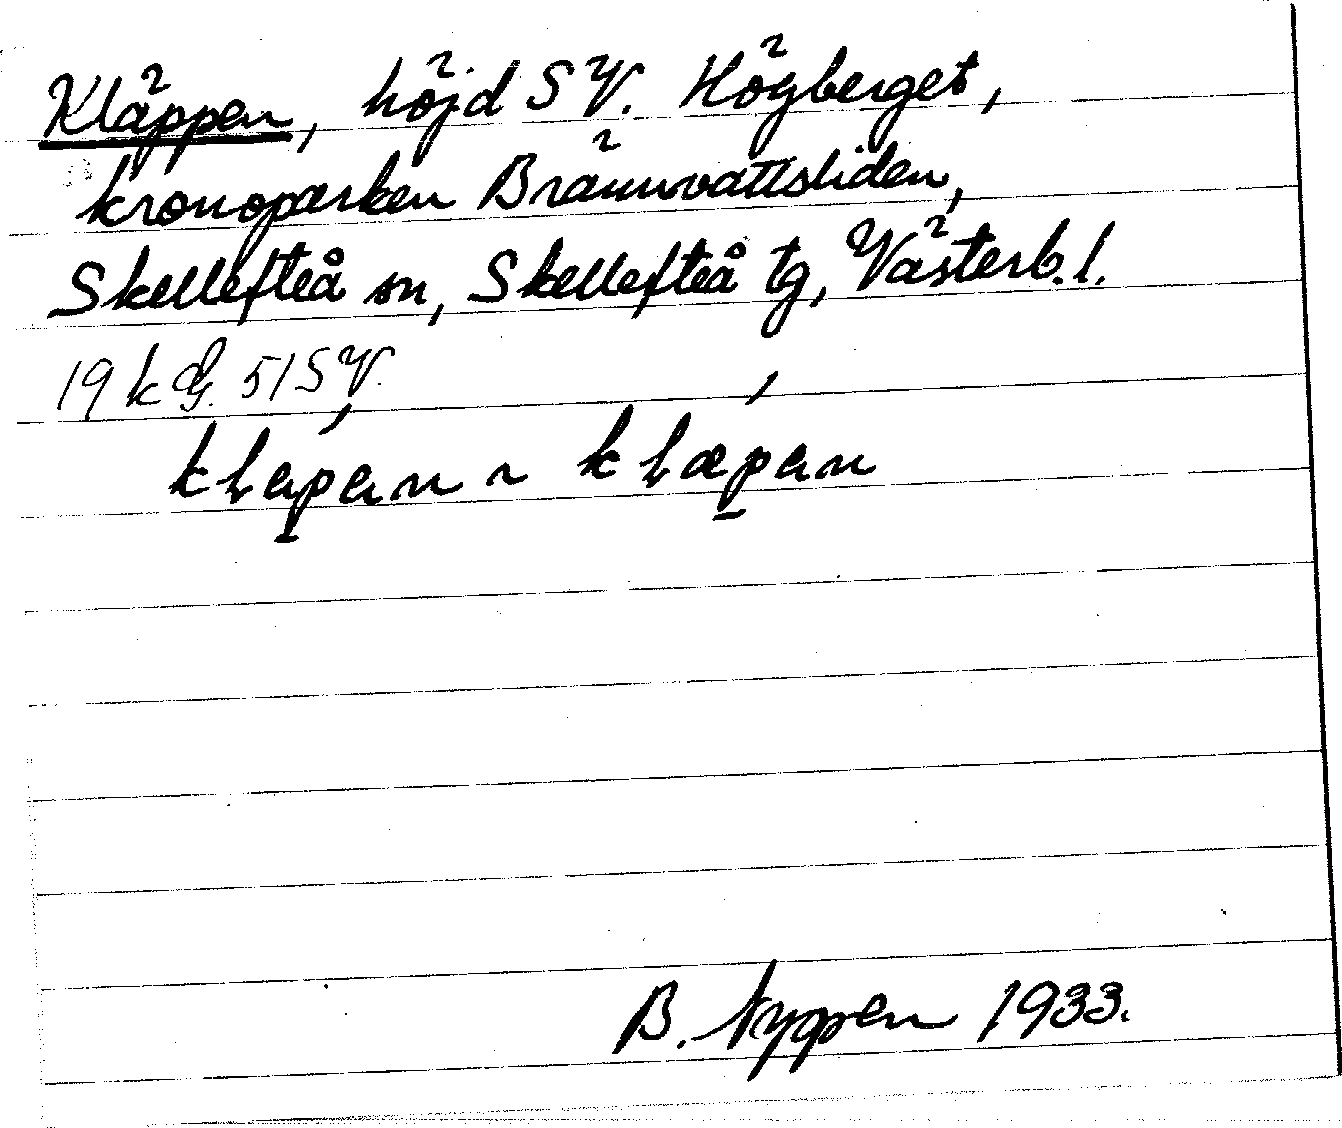 Kläppen, höjd SV. Högberget,
kronoparken Brännvattsliden,
Skellefteå sn, Skellefteå tg, Västerb. l.
19 k G. 51 SV.
klepan ~ klæpan
B. Nygren 1933.